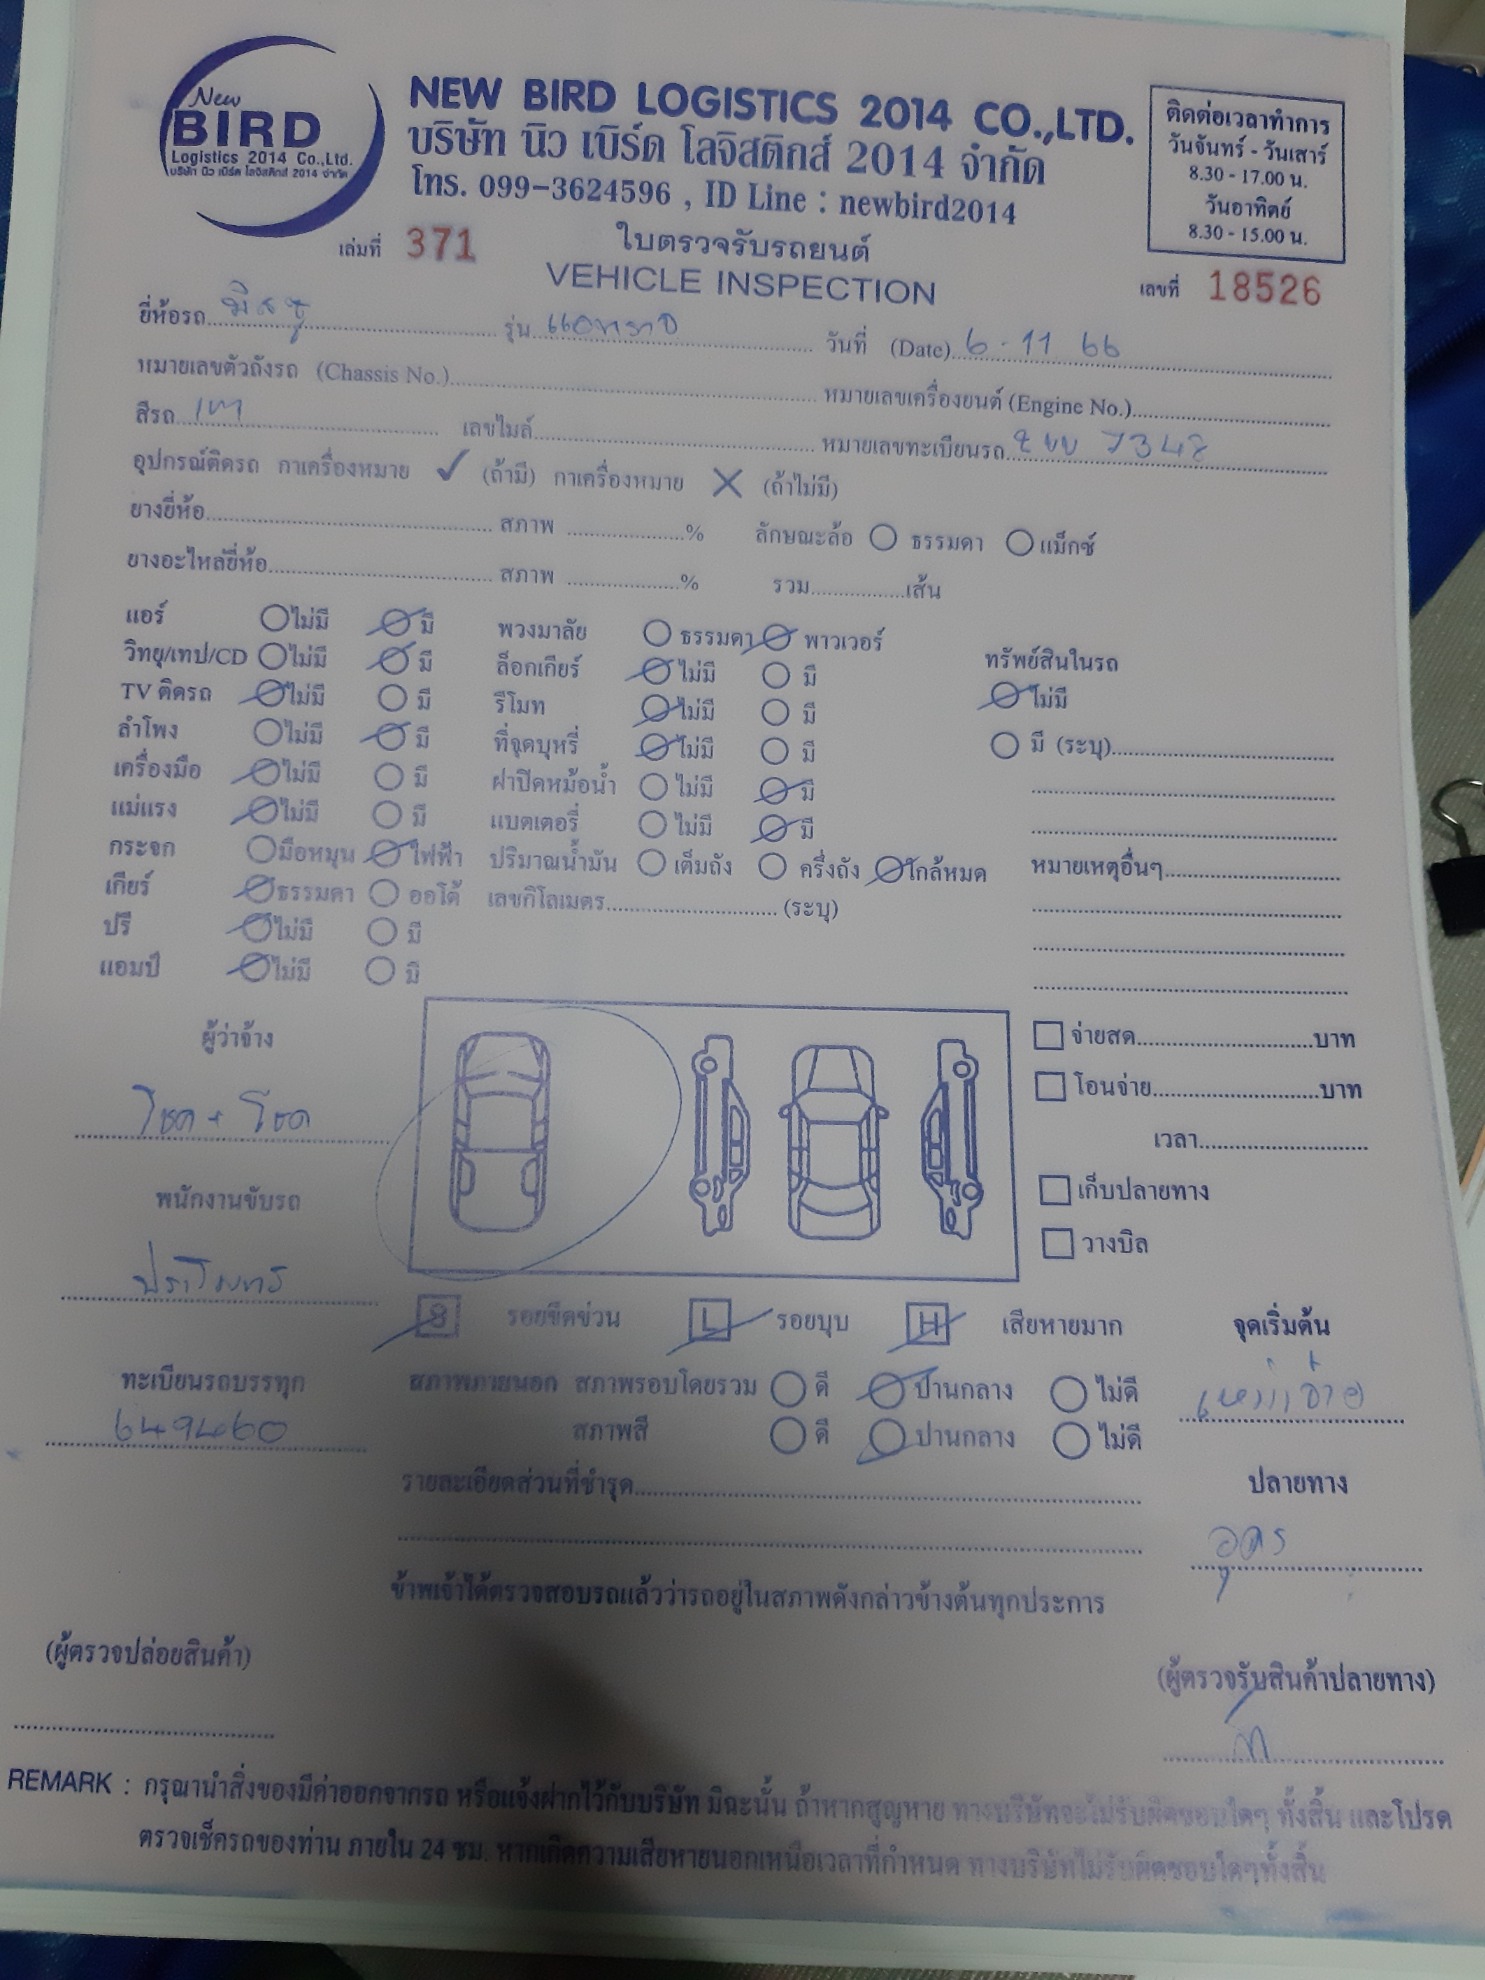 New
BIRD
Logistics 2014 Co.,Ltd.
บริษัท นิว เบิร์ด โลจิสติกส์ 2014 จำกัด
NEW BIRD LOGISTICS 2014 CO.,LTD.
บริษัท นิว เบิร์ด โลจิสติกส์ 2014 จำกัด
โทร. 099-3624596 , ID Line : newbird2014
ติดต่อเวลาทำการ
วันจันทร์ - วันเสาร์
8.30 - 17.00 น.
วันอาทิตย์
8.30 - 15.00 น.
เล่มที่ 371
ใบตรวจรับรถยนต์
VEHICLE INSPECTION
เลขที่ 18526
ยี่ห้อรถ มิตซู รุ่น แอททราจ วันที่ (Date) 6-11 66
หมายเลขตัวถังรถ (Chassis No.) หมายเลขเครื่องยนต์ (Engine No.)
สีรถ เทา เลขไมล์ หมายเลขทะเบียนรถ 2ขบ 7348
อุปกรณ์ติดรถ กาเครื่องหมาย ✓ (ถ้ามี) กาเครื่องหมาย ✕ (ถ้าไม่มี)
ยางยี่ห้อ สภาพ % ลักษณะล้อ ธรรมดา แม็กซ์
ยางอะไหล่ยี่ห้อ สภาพ % รวม เส้น
แอร์ ไม่มี มี พวงมาลัย ธรรมดา พาวเวอร์
วิทยุ/เทป/CD ไม่มี มี ล็อกเกียร์ ไม่มี มี ทรัพย์สินในรถ
TV ติดรถ ไม่มี มี รีโมท ไม่มี มี ไม่มี
ลำโพง ไม่มี มี ที่จุดบุหรี่ ไม่มี มี มี (ระบุ)
เครื่องมือ ไม่มี มี ฝาปิดหม้อน้ำ ไม่มี มี
แม่แรง ไม่มี มี แบตเตอรี่ ไม่มี มี
กระจก มือหมุน ไฟฟ้า ปริมาณน้ำมัน เต็มถัง ครึ่งถัง ใกล้หมด หมายเหตุอื่นๆ
เกียร์ ธรรมดา ออโต้ เลขกิโลเมตร (ระบุ)
ปรี ไม่มี มี
แอมป์ ไม่มี มี
ผู้ว่าจ้าง
จ่ายสด บาท
โอนจ่าย บาท
เวลา
พนักงานขับรถ
เก็บปลายทาง
วางบิล
S รอยขีดข่วน L รอยบุบ H เสียหายมาก จุดเริ่มต้น
ทะเบียนรถบรรทุก
649460
สภาพภายนอก สภาพรอบโดยรวม ดี ปานกลาง ไม่ดี
สภาพสี ดี ปานกลาง ไม่ดี
รายละเอียดส่วนที่ชำรุด
ปลายทาง
อุดร
ข้าพเจ้าได้ตรวจสอบรถแล้วว่ารถอยู่ในสภาพดังกล่าวข้างต้นทุกประการ
(ผู้ตรวจปล่อยสินค้า)
(ผู้ตรวจรับสินค้าปลายทาง)
REMARK : กรุณานำสิ่งของมีค่าออกจากรถ หรือแจ้งฝากไว้กับบริษัท มิฉะนั้น ถ้าหากสูญหาย ทางบริษัทจะไม่รับผิดชอบใดๆ ทั้งสิ้น และโปรด
ตรวจเช็ครถของท่าน ภายใน 24 ชม. หากเกิดความเสียหายนอกเหนือเวลาที่กำหนด ทางบริษัทไม่รับผิดชอบใดๆทั้งสิ้น